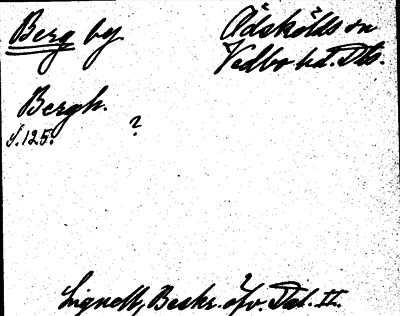 Berg by
Ådskölds sn
Vedbo hd. Dls.
Bergh.
s. 125.
?
Lignell, Beskr. öfv. Dal. II.